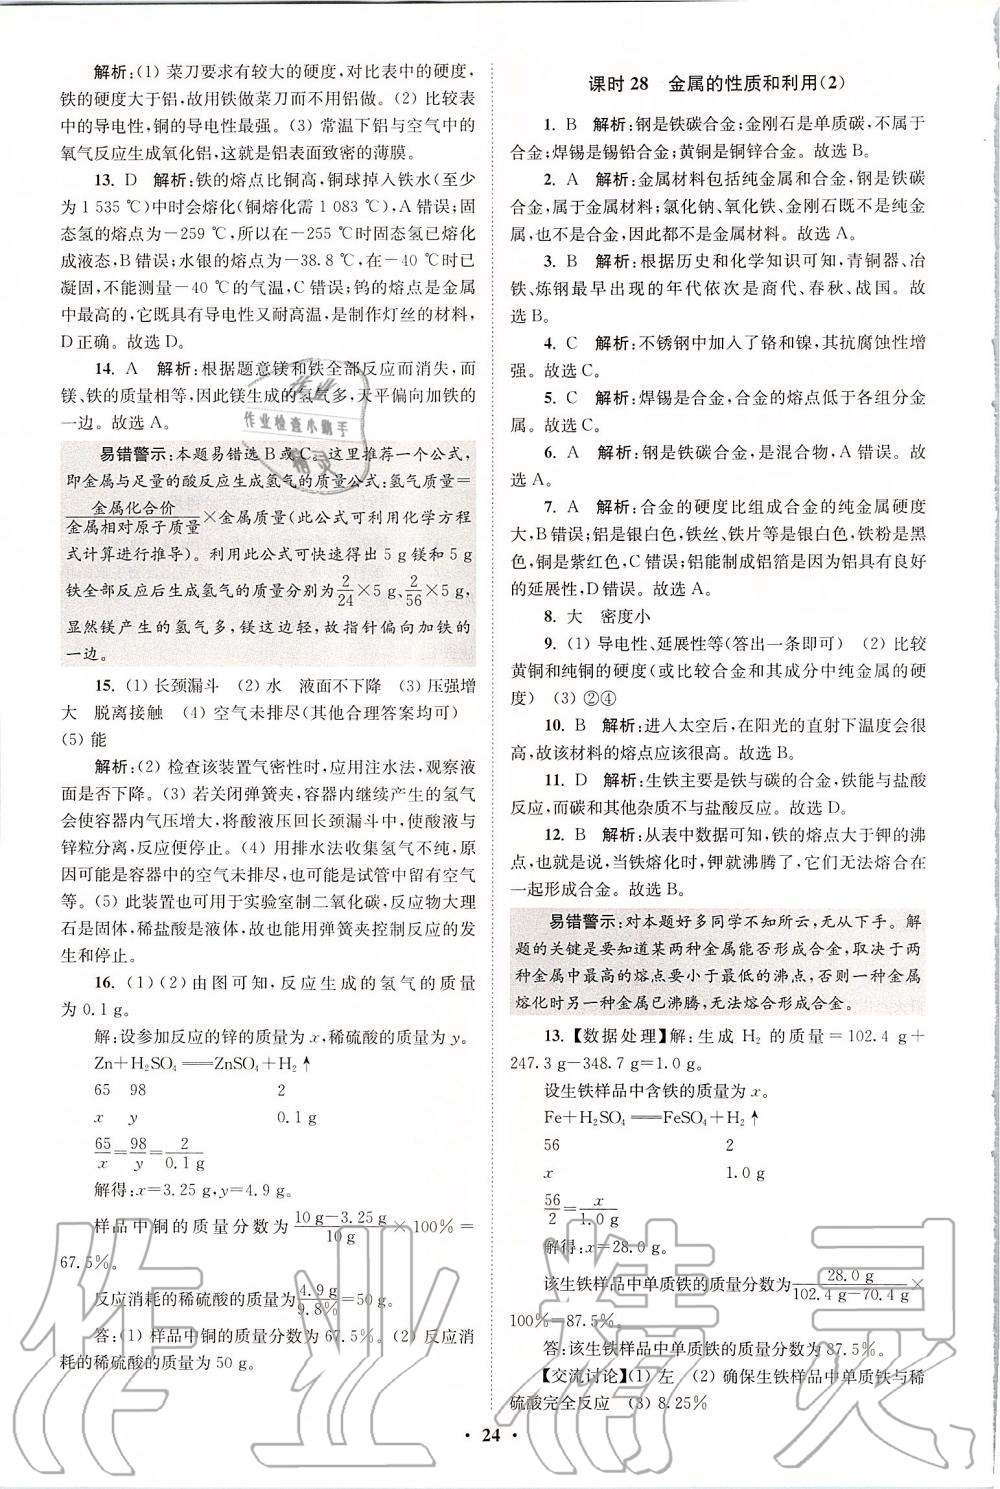 解析:(1) 菜刀要求有较大的硬度,对比表中的硬度,
铁的硬度大于铝,故用铁做菜刀而不用铝做。(2) 比较表
中的导电性,铜的导电性最强。(3) 常温下铝与空气中的
氧气反应生成氧化铝,这就是铝表面致密的薄膜。
13. D 解析:铁的熔点比铜高,铜球掉入铁水(至少
为 1 535 ℃)中时会熔化(铜熔化需 1 083 ℃),A 错误;固
态氢的熔点为-259 ℃,所以在-255 ℃时固态氢已熔化
成液态,B 错误;水银的熔点为-38.8 ℃,在-40 ℃时已
凝固,不能测量-40 ℃的气温,C 错误;钨的熔点是金属
中最高的,它既具有导电性又耐高温,是制作灯丝的材料,
D 正确。故选 D。
14. A 解析:根据题意镁和铁全部反应而消失,而
镁、铁的质量相等,因此镁生成的氢气多,天平偏向加铁的
一边。故选 A。
易错警示:本题易错选 B 或 C。这里推荐一个公式,
即金属与足量的酸反应生成氢气的质量公式:氢气质量=
金属化合价/金属相对原子质量×金属质量(此公式可利用化学方程
式计算进行推导)。利用此公式可快速得出 5 g 镁和 5 g
铁全部反应后生成氢气的质量分别为2/24×5 g、2/56×5 g,
显然镁产生的氢气多,镁这边轻,故指针偏向加铁的
一边。
15. (1) 长颈漏斗 (2) 水 液面不下降 (3) 压强增
大 脱离接触 (4) 空气未排尽(其他合理答案均可)
(5) 能
解析:(2) 检查该装置气密性时,应用注水法,观察液
面是否下降。(3) 若关闭弹簧夹,容器内继续产生的氢气
会使容器内气压增大,将酸液压回长颈漏斗中,使酸液与
锌粒分离,反应便停止。(4) 用排水法收集氢气不纯,原
因可能是容器中的空气未排尽,也可能是试管中留有空气
等。(5) 此装置也可用于实验室制二氧化碳,反应物大理
石是固体,稀盐酸是液体,故也能用弹簧夹控制反应的发
生和停止。
16. (1)(2) 由图可知,反应生成的氢气的质量
为 0.1 g。
解:设参加反应的锌的质量为 x,稀硫酸的质量为 y。
Zn+H₂SO₄══ZnSO₄+H₂↑
65 98 2
x y 0.1 g
65/x=98/y=2/0.1 g
解得:x=3.25 g,y=4.9 g。
样品中铜的质量分数为10 g-3.25 g/10 g×100%=
67.5%。
反应消耗的稀硫酸的质量为4.9 g/9.8%=50 g。
答:(1) 样品中铜的质量分数为 67.5%。(2) 反应消
耗的稀硫酸的质量为 50 g。
课时 28 金属的性质和利用(2)
1. B 解析:钢是铁碳合金;金刚石是单质碳,不属于
合金;焊锡是锡铅合金;黄铜是铜锌合金。故选 B。
2. A 解析:金属材料包括纯金属和合金,钢是铁碳
合金,属于金属材料;氯化钠、氧化铁、金刚石既不是纯金
属,也不是合金,因此都不是金属材料。故选 A。
3. B 解析:根据历史和化学知识可知,青铜器、冶
铁、炼钢最早出现的年代依次是商代、春秋、战国。故
选 B。
4. C 解析:不锈钢中加入了铬和镍,其抗腐蚀性增
强。故选 C。
5. C 解析:焊锡是合金,合金的熔点低于各组分金
属。故选 C。
6. A 解析:钢是铁碳合金,是混合物,A 错误。故
选 A。
7. A 解析:合金的硬度比组成合金的纯金属硬度
大,B 错误;铝是银白色,铁丝、铁片等是银白色,铁粉是黑
色,铜是紫红色,C 错误;铝能制成铝箔是因为铝具有良好
的延展性,D 错误。故选 A。
8. 大 密度小
9. (1) 导电性、延展性等(答出一条即可) (2) 比较
黄铜和纯铜的硬度(或比较合金和其成分中纯金属的硬
度) (3) ②④
10. B 解析:进入太空后,在阳光的直射下温度会很
高,故该材料的熔点应该很高。故选 B。
11. D 解析:生铁主要是铁与碳的合金,铁能与盐酸
反应,而碳和其他杂质不与盐酸反应。故选 D。
12. B 解析:从表中数据可知,铁的熔点大于钾的沸
点,也就是说,当铁熔化时,钾就沸腾了,它们无法熔合在
一起形成合金。故选 B。
易错警示:对本题好多同学不知所云,无从下手。解
题的关键是要知道某两种金属能否形成合金,取决于两
种金属中最高的熔点要小于最低的沸点,否则一种金属
熔化时另一种金属已沸腾,无法熔合形成合金。
13.【数据处理】解:生成 H₂ 的质量=102.4 g+
247.3 g-348.7 g=1.0 g。
设生铁样品中含铁的质量为 x。
Fe+H₂SO₄══FeSO₄+H₂↑
56 2
x 1.0 g
56/2=x/1.0 g
解得:x=28.0 g。
该生铁样品中单质铁的质量分数为28.0 g/102.4 g-70.4 g×
100%=87.5%。
答:该生铁样品中单质铁的质量分数为 87.5%。
【交流讨论】(1) 左 (2) 确保生铁样品中单质铁与稀
硫酸完全反应 (3) 8.25%
• 24 •
作业检查小助手
作业精灵